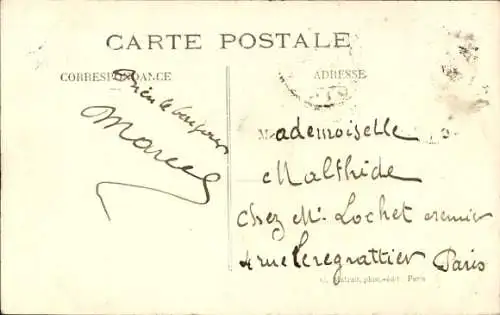 CARTE POSTALE
CORRESPONDANCE
ADRESSE
Bien le bonjour
Marcel
Mademoiselle
Mathilde
Chez Mr Lochet cremier
4 rue Leregrattier Paris
phot.-édit. Paris